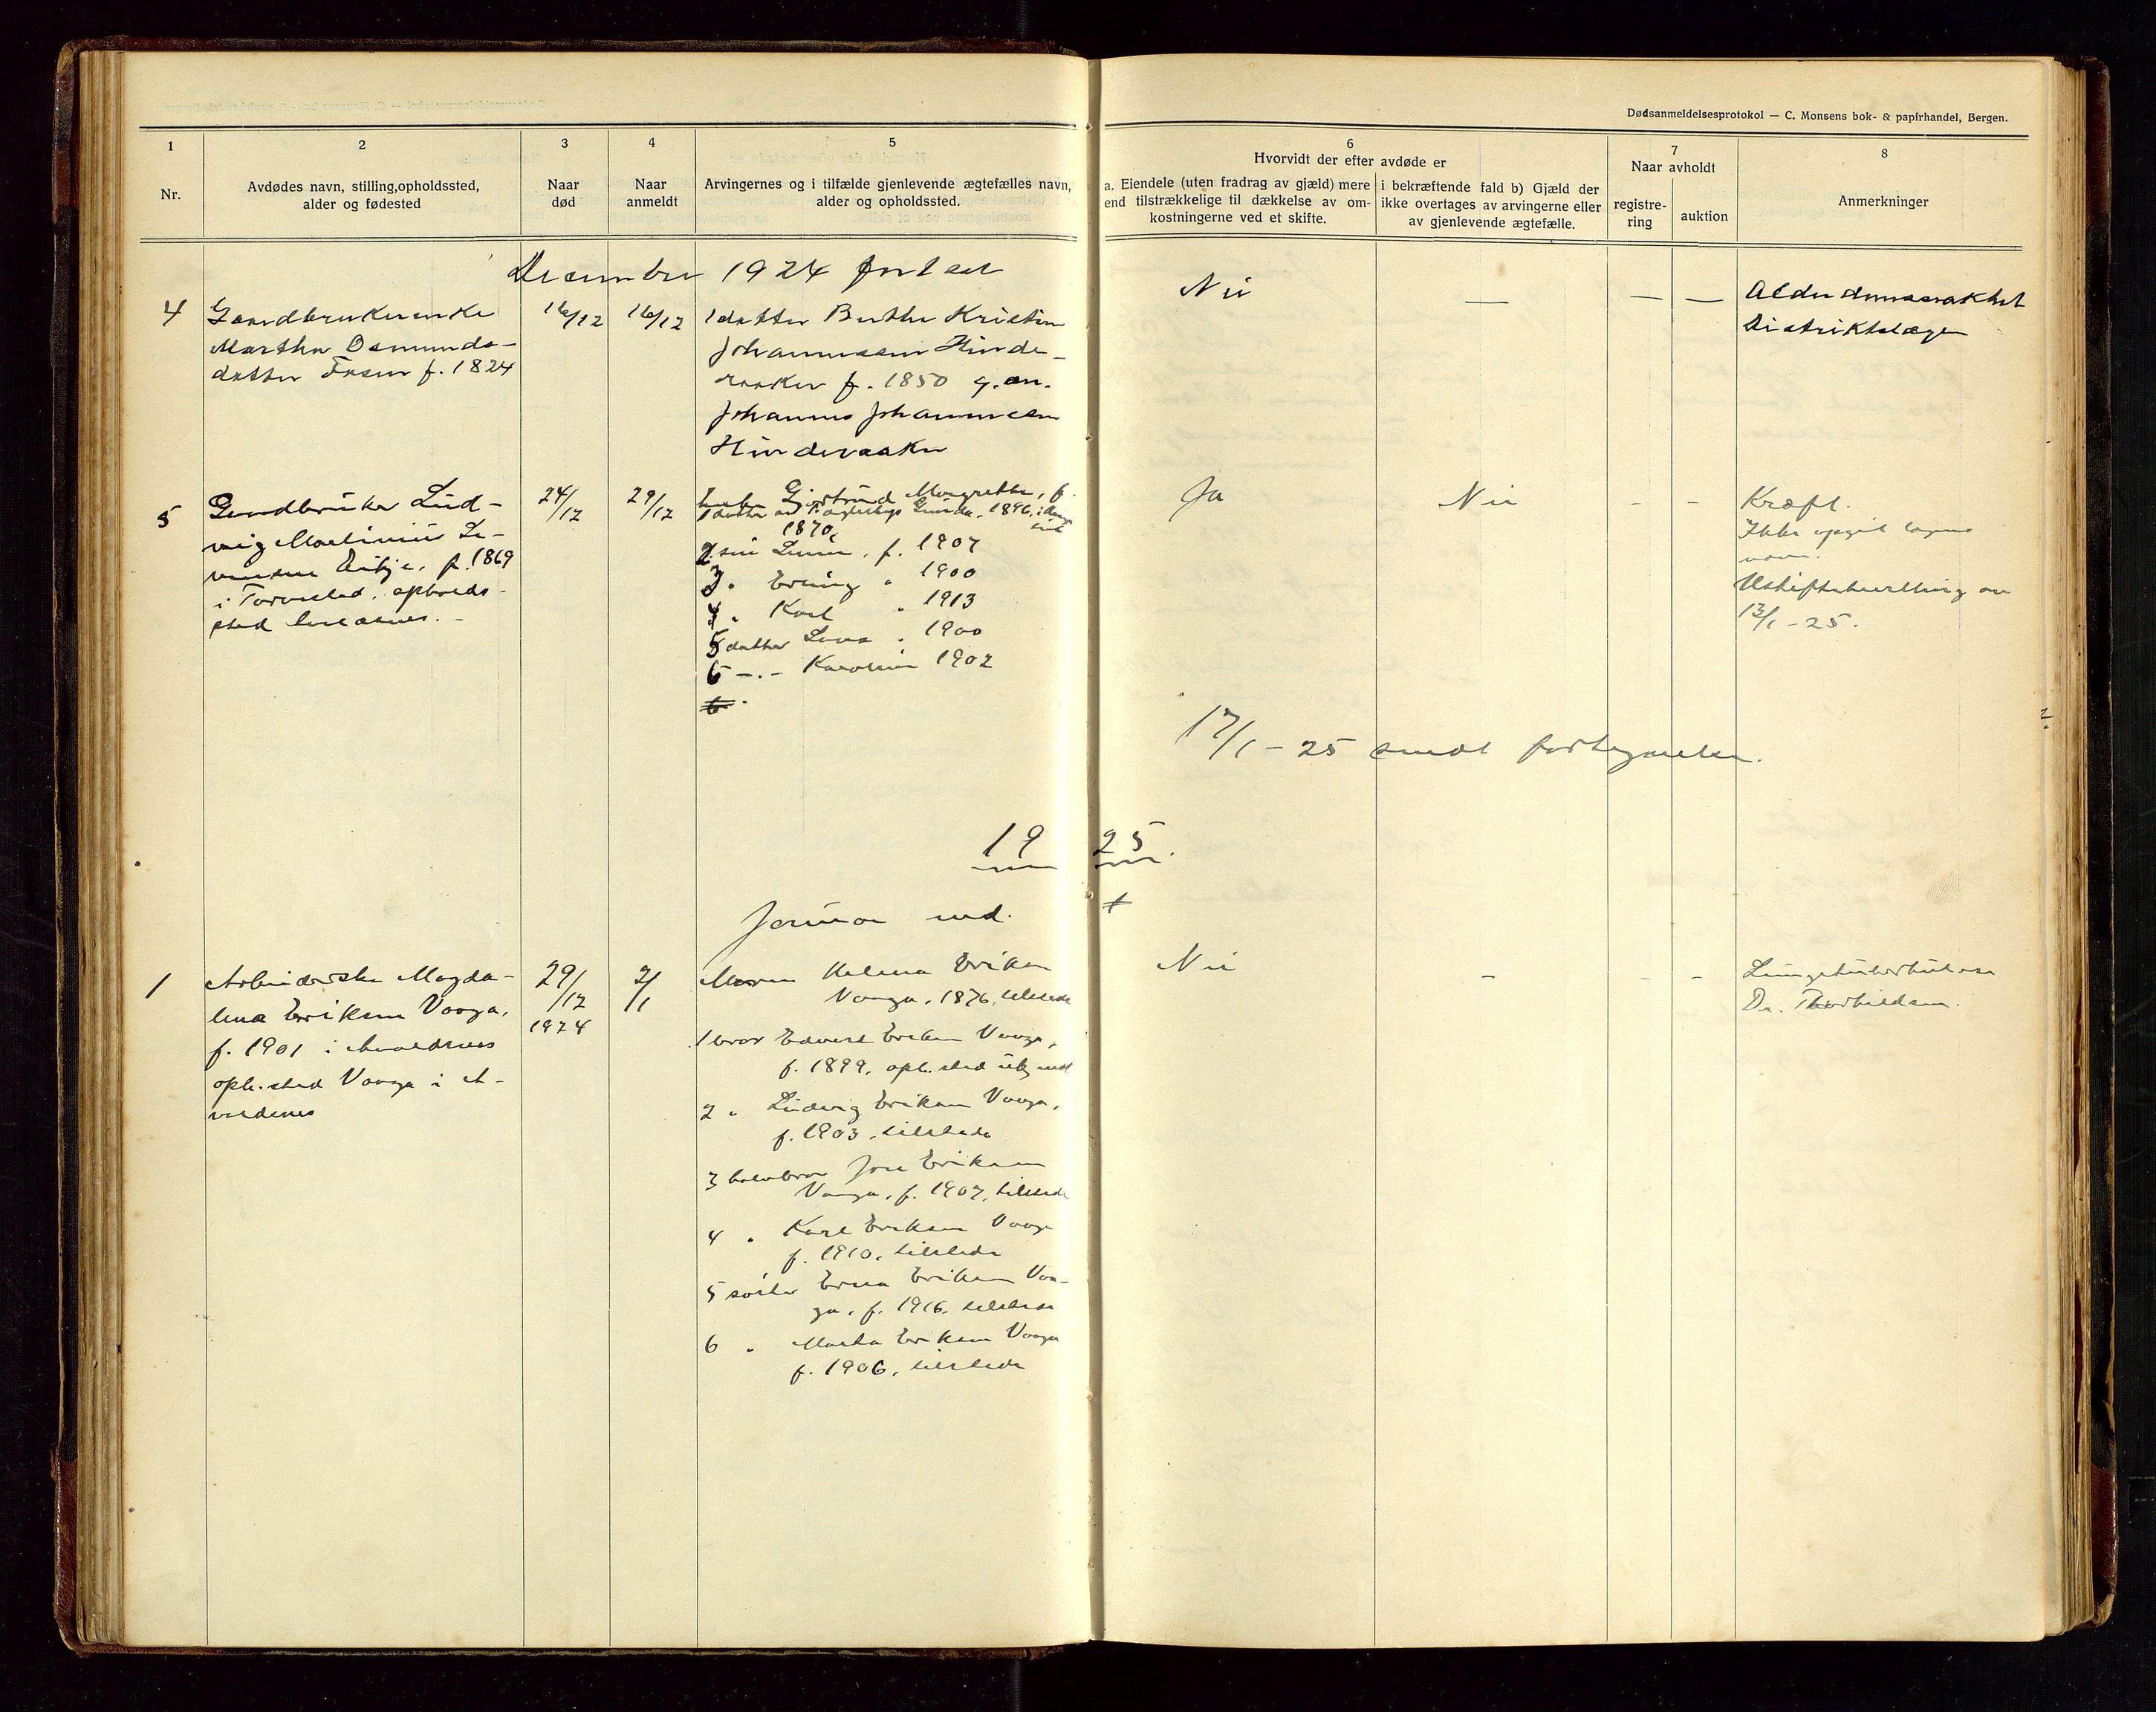 Dødsanmeldelsesprotokol — C. Monsens bok- & papirhandel, Bergen.
1
Nr.
2
Avdødes navn, stilling, opholdssted,
alder og fødested
3
Naar
død
4
Naar
anmeldt
5
Arvingernes og i tilfælde gjenlevende ægtefælles navn,
alder og opholdssted.
6
Hvorvidt der efter avdøde er
a. Eiendele (uten fradrag av gjæld) mere
end tilstrækkelige til dækkelse av om-
kostningerne ved et skifte.
i bekræftende fald b) Gjæld der
ikke overtages av arvingerne eller
av gjenlevende ægtefælle.
7
Naar avholdt
registre-
ring
auktion
8
Anmerkninger
December 1924 fortsat
4
Gaardbrukerenke
Martha Osmunds-
datter Fosen f. 1824
16/12
16/12
1 datter Berthe Kristine
Johannessen Hinde-
raaker f. 1850 g. m.
Johannes Johannessen
Hinderaaker
Nei
—
— —
Alderdomssvakhet
Distriktslægen
5
Gaardbruker Lud-
vig Martinius
Eikje, f. 1869
i Torvestad, opholds-
sted
24/12
29/12
Gjertrud Margrethe, f.
1 datter 1896,
1870,
2. søn f. 1907
3 " Erling " 1900
4 " Karl " 1913
5 datter Lena " 1900
6 -"- Karoline 1902
6
Ja
Nei
- -
Kræft.
Ikke opgit lægens
navn.
Uskiftebevilling av
13/1 - 25.
17/1 - 25 sendt fortegnelse.
1925.
Januar md.
1
Arbeiderske Magda-
lena Eriksen Vaaga,
f. 1901 i Avaldsnes
oph.sted Vaaga i A-
valdsnes
29/12
1924
2/1
Moren Helena Eriksen
Vaaga, 1876, tilstede
1 bror Edvard Eriksen Vaaga,
f. 1899, oph.sted ukjendt
2 " Ludvig Eriksen Vaaga,
f. 1903, tilstede
3 halvbror Eriksen
Vaaga, f. 1907, tilstede
4 " Karl Eriksen Vaaga
f. 1910, tilstede
5 søster Erna Eriksen Vaa-
ga, f. 1916, tilstede
6 " Marta Eriksen Vaaga
f. 1906, tilstede
Nei
-
- -
Lungetuberkulose
Dr. Thorkildsen.